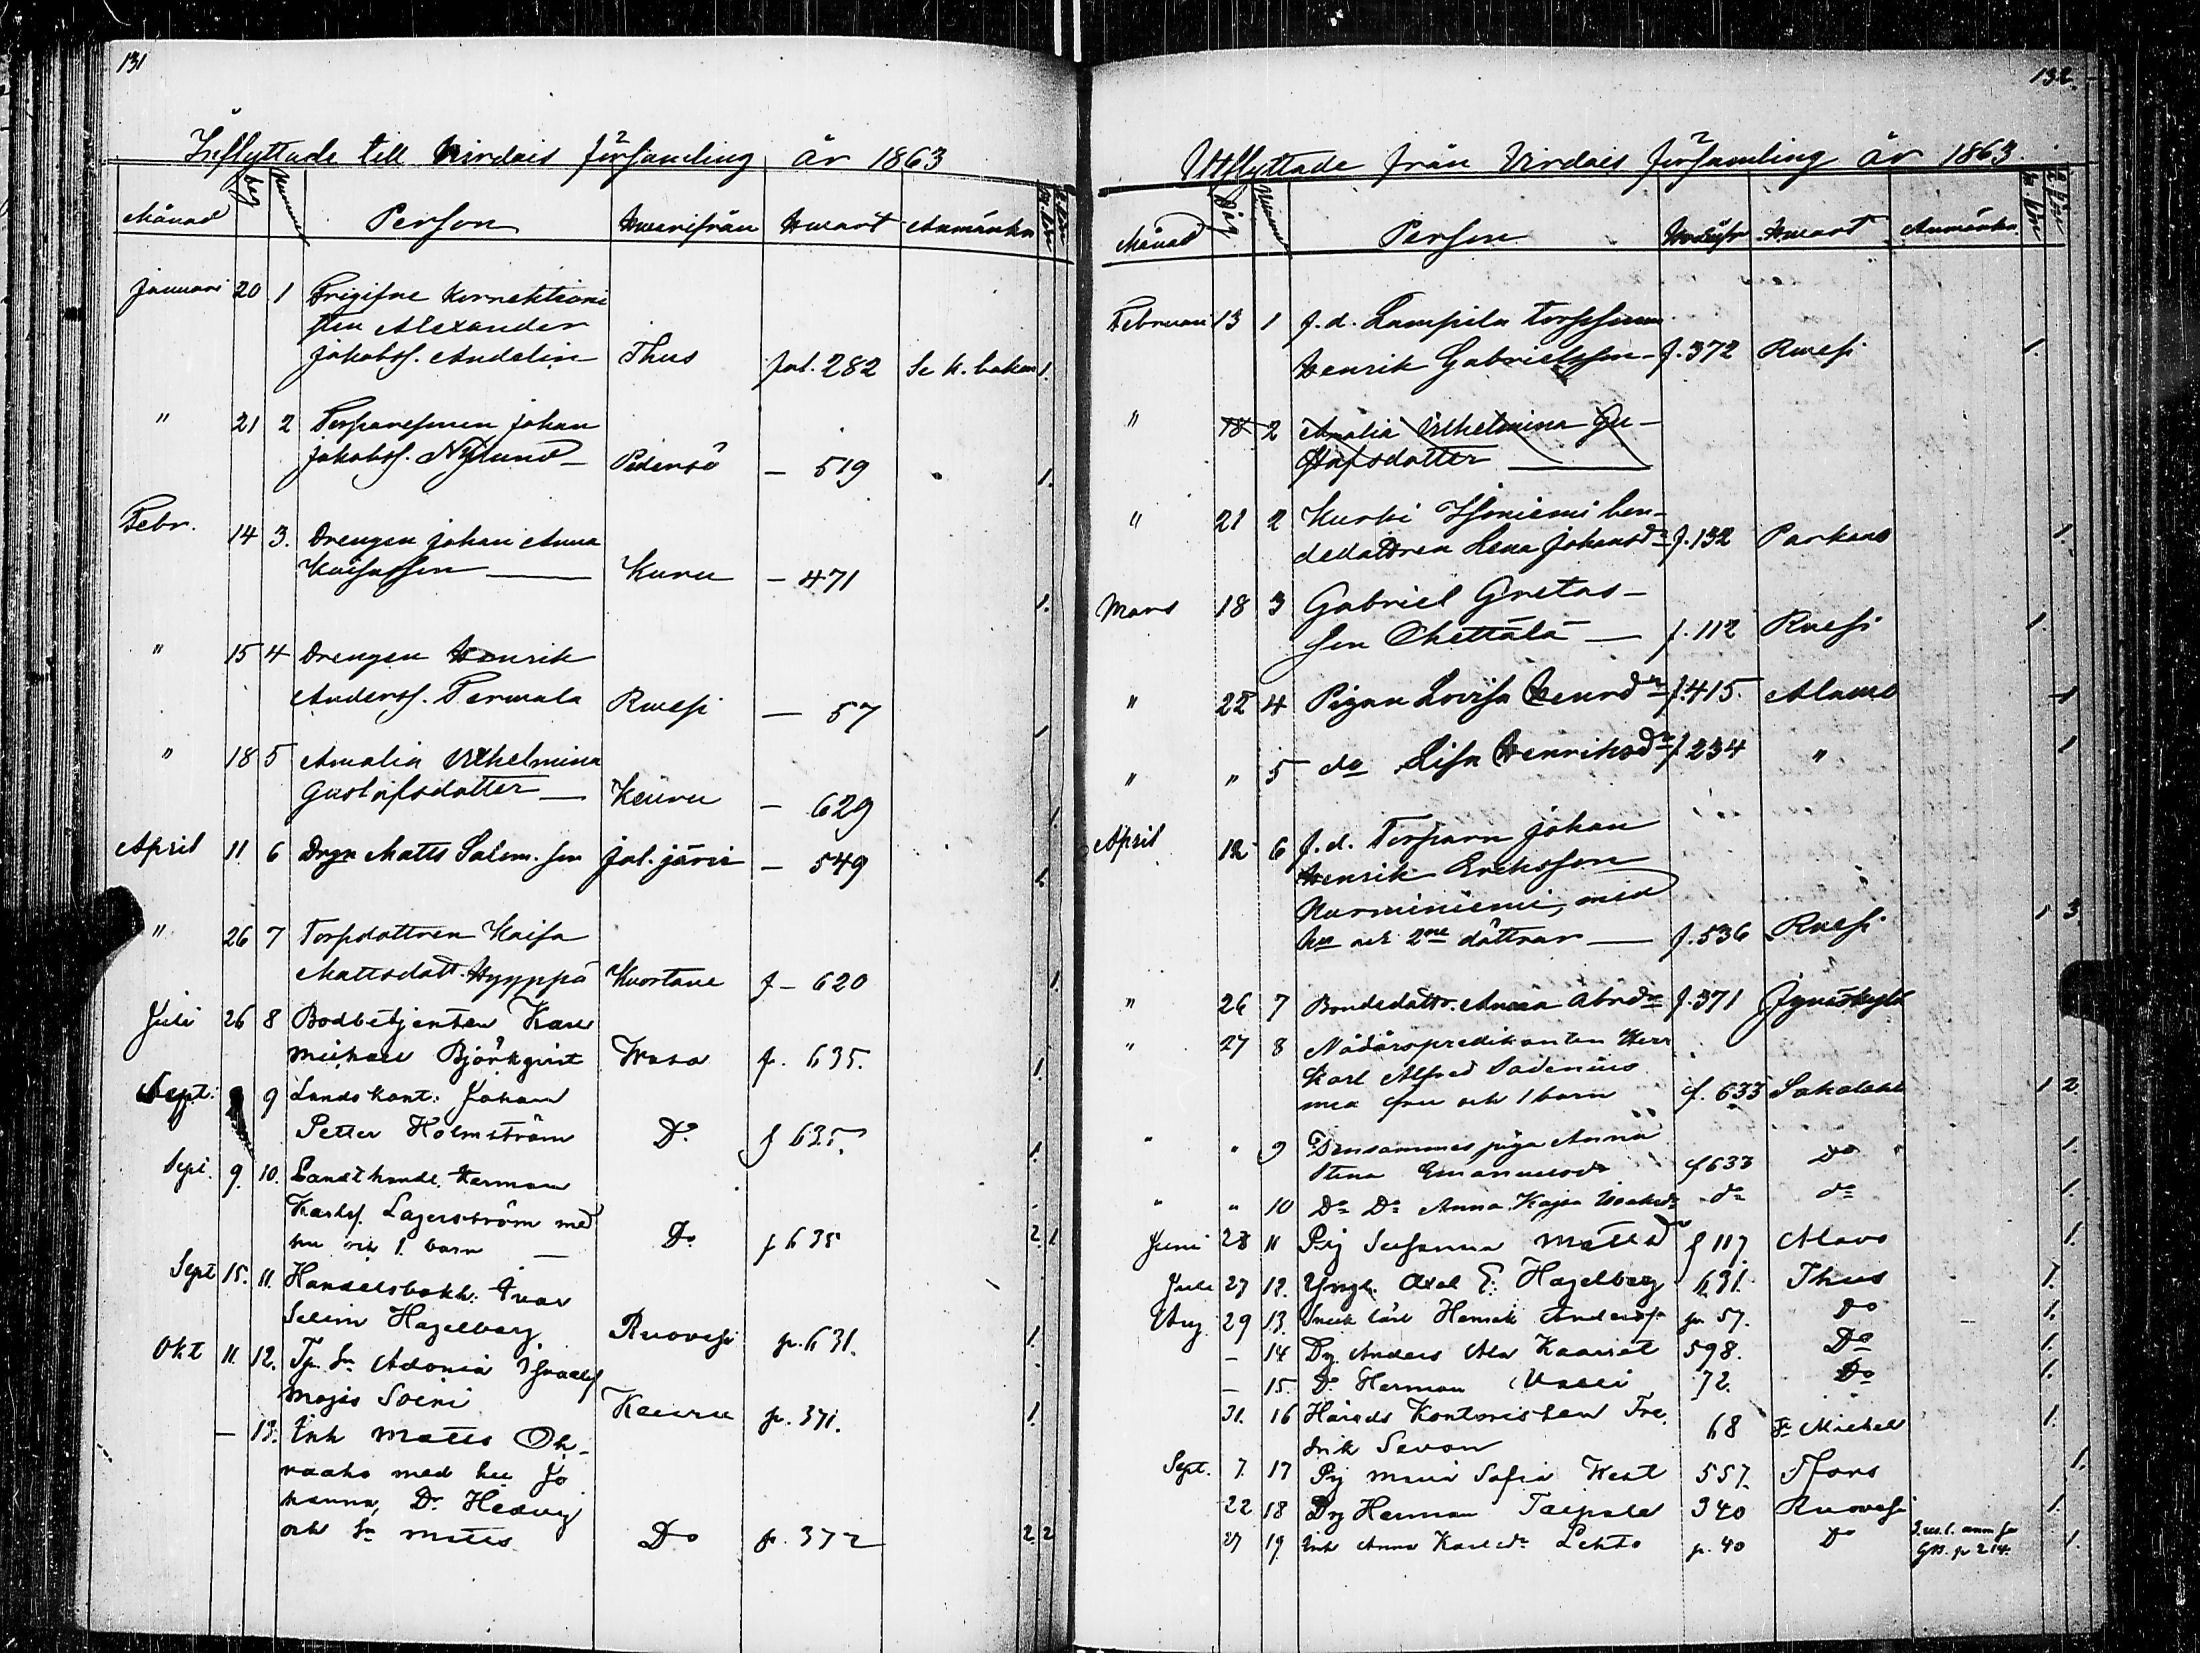 131
Inflyttade till Virdois församling år 1863
Månad Dag Nummer Person Hvarifrån Hvart Anmärkn M. kön Q. kön
Januari 20 1 Frigifne Korrektioni
sten Alexander
Jakobss. Andelin Thus fol. 282 Se k. boken 1.
" 21 2 Torparesonen Johan
Jakobss. Nylund Pedersö — 519 1.
Febr. 14 3. Drengen Johan Anna
Kaisasson Kuru — 471 1.
" 15 4 Drengen Henrik
Anderss. Permala Ruesi — 57 1
" 18 5 Amalia Vilhelmina
Gustafsdotter Keuru — 629 1.
April 11 6 Drgn Matts Salom. son Jal. järvi — 549 1.
" 26 7 Torpdottren Kaisa
Mattsdott. Hyyppä Kuortane f — 620 1.
Juli 26 8 Bodbetjenten Karl
Michael Björkqvist Wasa p. 635. 1.
Sept. 9 Landskant: Johan
Petter Holmström Do f 635. 1.
Sept. 9. 10. Landthandl. Herman
Karlss. Lagerström med
hu och 1. barn Do f 635 2. 1
Sept 15. 11. Handelsbokh: Ivar
Selim Hagelberg Ruovesi p. 631. 1.
Okt 11. 12. Tp. Sn Adonia Israelss
Majis Soini Keuru p. 371. 1.
— 13. Inh Matts Oh-
raaho med hu Jo
hanna, Dr Hedvig
och Sn Matts Do p. 372 2. 2
132.
Utflyttade från Virdois församling år 1863.
Månad Dag Nummer Person Hvarifr Hvart Anmärkn. M. kön Q. kön
Februari 13 1 f.d. Lampila torpsonen
Henrik Gabrielsson f. 372 Ruesi 1.
" 18 2 Amalia Vilhelmina Gu-
stafsdotter
" 21 2 Kurki Isoniemi bon-
dedottren Lena Johansdr f. 132 Parkano 1.
Mars 18 3 Gabriel Gretas-
son Ohettälä f. 112 Ruesi 1.
" 22 4 Pigan Lovisa Henrdr f. 415. Alavo 1
" " 5 do Lisa Henriksdr f 234 " 1
April 12 6 f.d. Torparn Johan
Henrik Eriksson
Nurminiemi, med
hu och 2ne döttrar f. 536 Ruesi 1 3
" 26 7 Bondedottr. Anna Abrdr f. 371 Jyväskylä
" 27 8 Nådårspredikanten Herr
Karl Alfred Sadenius
med fru och 1 barn f. 633 Sakalaks 1 2.
" " 9 Densammes piga Anna
Stina Emanuelsdr f 633 Do 1.
" " 10 Do Do Anna Kajsa Isaksdr do do 1.
Juni 28 11 Pig Susanna Mattsd f 117 Alavo 1.
Juli 27 12. Yngl. Axel E. Hagelberg 631. Thus 1.
Aug 29 13. Snick lärl Henrik Anderss p. 57. Do 1.
— 14 Dr. Anders Ala Kaariat 598. Do 1.
— 15. Do Herman Valli 72. Do 1.
31. 16 Härads Kontoristen Fre
drik Savon 68 St Michel 1.
Sept. 7. 17 Pig Maria Sofia West 557. Hfors 1.
22 18 Drg Herman Taipale 340 Ruovesi 1.
27 19 Inh Anna Karlsdr Lehto p. 40 Do GB. p 214. 1.